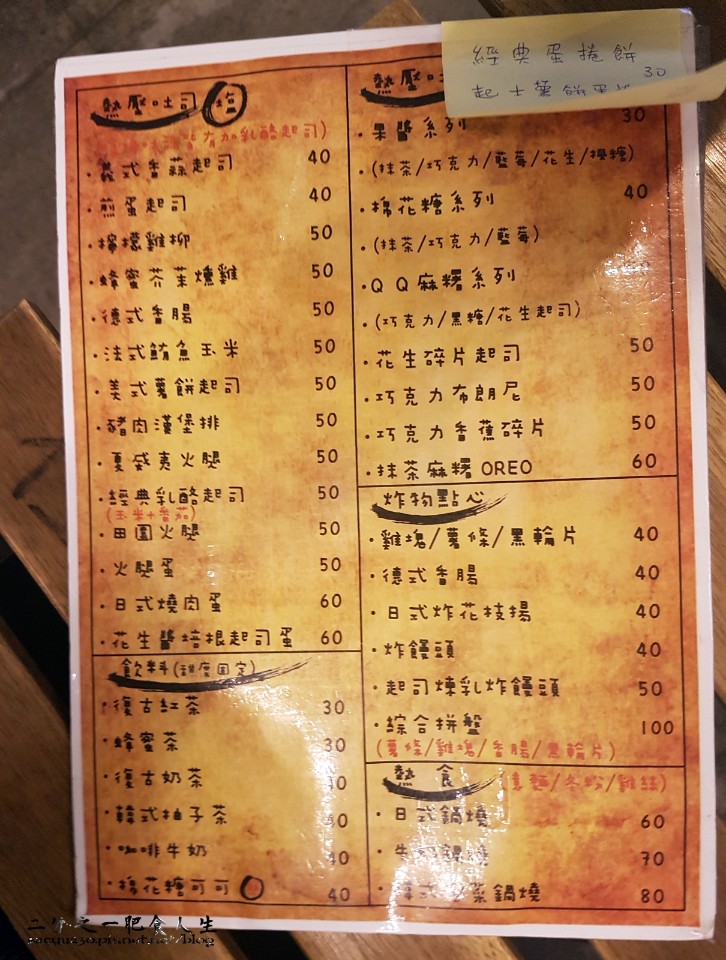 熱壓吐司 鹹
有加乳酪起司)
義式香蒜起司 40
煎蛋起司 40
檸檬雞柳 50
蜂蜜芥茉燻雞 50
德式香腸 50
法式鮪魚玉米 50
美式薯餅起司 50
豬肉漢堡排 50
夏威夷火腿 50
經典乳酪起司 50
(玉米+番茄)
田園火腿 50
火腿蛋 50
日式燒肉蛋 60
花生醬培根起司蛋 60
飲料(甜度固定)
復古紅茶 30
蜂蜜茶 30
復古奶茶 40
韓式柚子茶 40
咖啡牛奶 40
棉花糖可可 40
經典蛋捲餅
30
熱壓吐
果醬系列 30
(抹茶/巧克力/藍莓/花生/楓糖)
棉花糖系列 40
(抹茶/巧克力/藍莓)
QQ麻糬系列
(巧克力/黑糖/花生起司)
花生碎片起司 50
巧克力布朗尼 50
巧克力香蕉碎片 50
抹茶麻糬OREO 60
炸物點心
雞塊/薯條/黑輪片 40
德式香腸 40
日式炸花枝揚 40
炸饅頭 40
起司煉乳炸饅頭 50
綜合拼盤 100
(薯條/雞塊/香腸/黑輪片)
熱食 (意麵/冬粉/雞絲)
日式鍋燒 60
牛奶鍋燒 70
韓式泡菜鍋燒 80
二分之一肥食人生